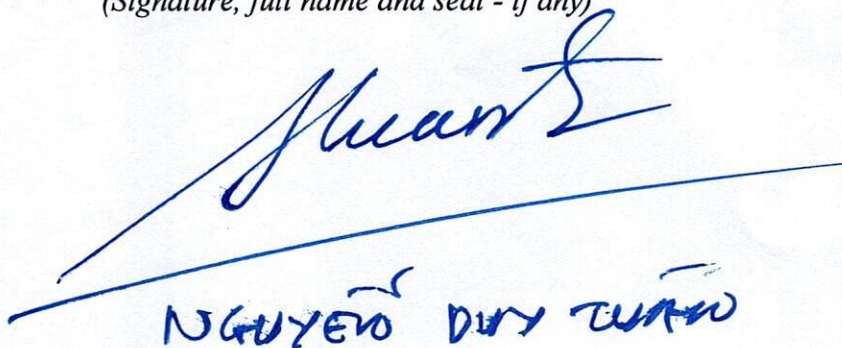 (Signature, full name and seal - if any)
NGUYỄN DUY